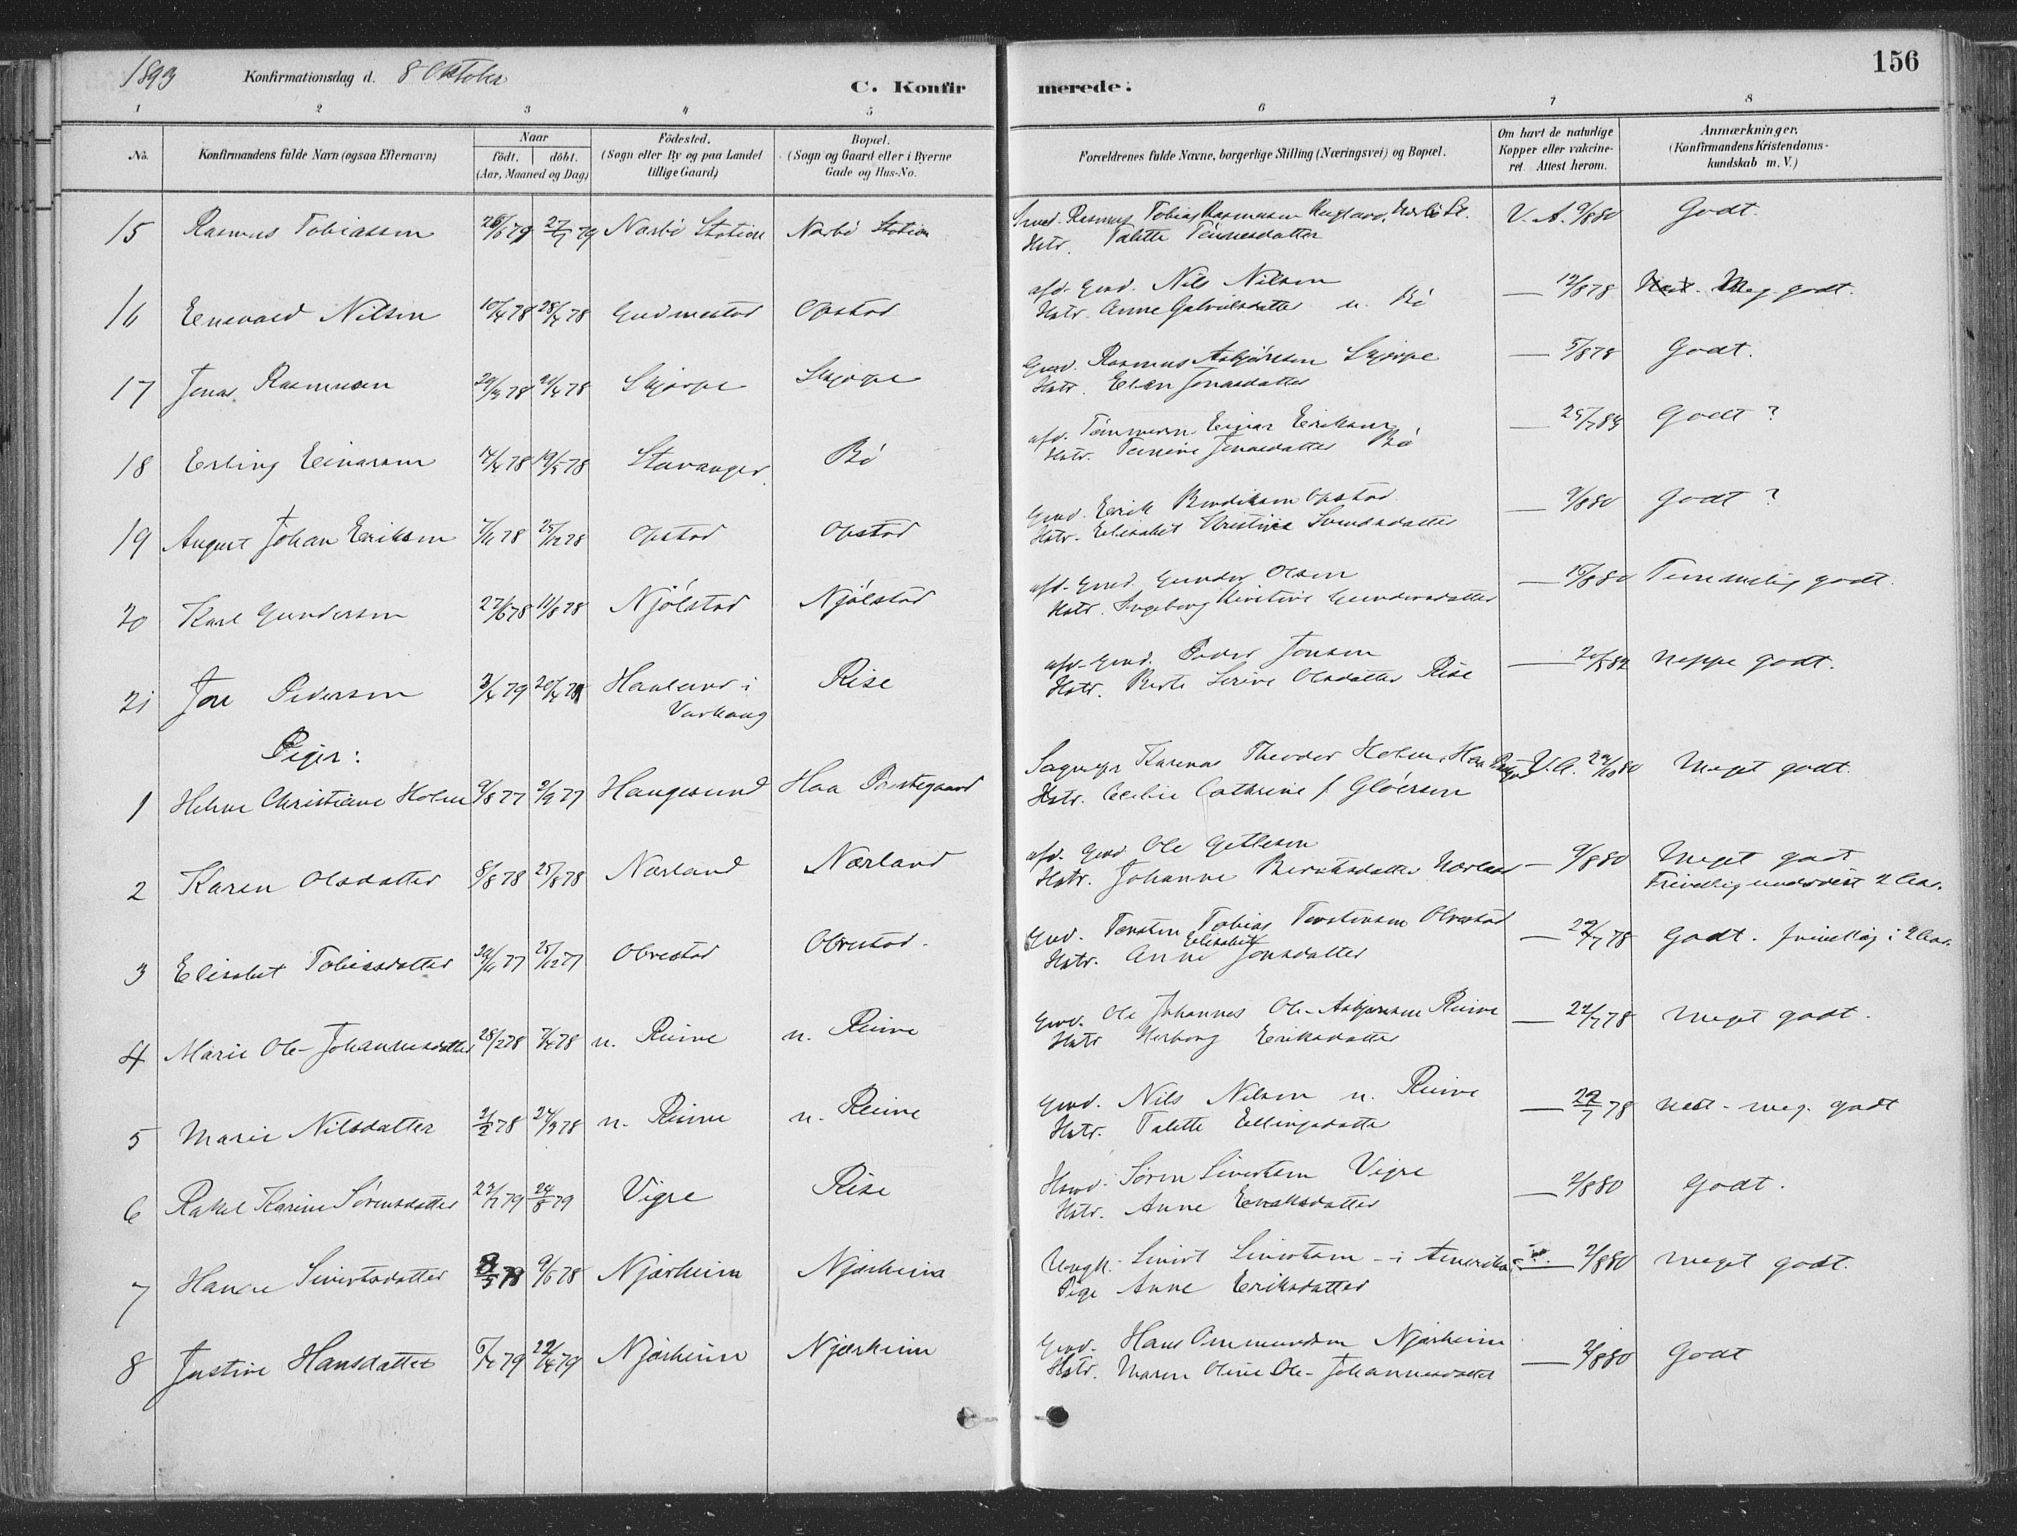 1893 Konfirmationsdag d. 8 Oktober C. Konfirmerede: 156
1 2 3 4 5 6 7 8
No. Konfirmandens fulde Navn (ogsaa Efternavn) Naar födt. döbt. (Aar, Maaned og Dag) Födested. (Sogn eller By og paa Landet tillige Gaard) Bopæl. (Sogn og Gaard eller i Byerne Gade og Hus-No. Forældrenes fulde Navne, borgerlige Stilling (Næringsvei) og Bopæl. Om havt de naturlige Kopper eller vakcineret. Attest herom. Anmærkninger, (Konfirmandens Kristendomskundskab m. V.)
15 Rasmus Tobiassen 79 27/7 79 Nærbö Station Nærbö Station Smed. Rasmus Tobias Rasmussen V. A. 9/8 80 Godt.
Hstr. Talette Tönnesdatter
16 Enevald Nilsen 10/4 78 28/4 78 Gudmestad Opstad afd. Grd. Nils Nilsen — 12/8 78 Meg. godt.
Hstr. Anne Gabrielsdatter n. Bö
17 Jonas Rasmussen 29/3 78 21/4 78 Skjærpe Skjærpe Grd. Rasmus Asbjörnsen Skjærpe — 5/8 78 Godt.
Hstr. Elen Jonasdatter
18 Erling Einarsen 14/4 78 19/5 78 Stavanger Bö afd. Tömmerm. Einar Eriksen — 25/7 84 Godt ?
Hstr. Jonasdatter Bö
19 August Johan Eriksen 7/11 78 25/12 78 Opstad Opstad Grd. Erik Bendiksen Opstad — 9/8 80 Godt ?
Hstr. Elisabet Kristine Svendsdatter
20 Karl Gundersen 27/6 78 11/8 78 Njölstad Njölstad afd. Grd. Gunder Olsen — 10/8 80 Temmelig godt.
Hstr. Ingeborg Kirstine Gundersdatter
21 Jon Pedersen 3/4 79 20/4 79 Haaland i Varhaug Rise afd. Grd. Peder Jonsen — 82 neppe godt.
Hstr. Berte Serine Olsdatter Rise
Piger:
1 Helene Christiane Holm 2/8 77 2/9 77 Haugesund Haa Præstegaard Theodor Holm, Haa V. A. 80 Meget godt.
Hstr. Cecilie Cathrine f. Glöersen
2 Karen Olsdatter 8/8 78 25/8 78 Nærland Nærland afd. Grd Ole Gitlesen — 9/8 80 Meget godt
Hstr. Johanne Nærland Frivillig undervist 2 Aar.
3 Elisabet Tobiasdatter 77 25/12 77 Obrestad Obrestad. Grd. Torsten Tobias Torstensen Obrestad — 22/7 78 Godt. frivillig i 2 Aar.
Hstr. Anne Elisabet Jonsdatter
4 Marie Ole-Johannesdatter 28/2 78 7/4 78 n. Reime n. Reime Grd. Ole Johannes Ole-Asbjörnsen Reime — 22/7 78 Meget godt.
Hstr Herborg Eriksdatter
5 Marie Nilsdatter 21/2 78 24/3 78 n. Reime n. Reime Grd. Nils Nilsen n. Reime — 22/7 78 Næst-meg. godt
Hstr. Talette Ellingsdatter
6 Rakel Karine Sörensdatter 79 24/8 79 Vigre Rise Hsmd. Sören Sivertsen Vigre — 2/8 80 Godt.
Hstr. Anne Enoksdatter
7 Hanne Sivertsdatter 78 9/6 78 Njærheim Njærheim Ungk. Sivert Sivertsen — i Amerika — 2/8 80 meget godt.
Pige Anne Eriksdatter
8 Justine Hansdatter 6/4 79 22/4 79 Njærheim Njærheim Grd. Hans Ommundsen Njærheim — 2/8 80 Godt
Hstr. Maren Oline Ole-Johannesdatter